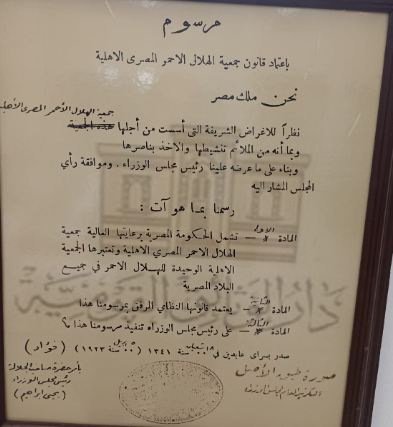 مرسوم
باعتماد قانون جمعية الهلال الاحمر المصرى الاهلية
نحن ملك مصر
جمعية الهلال الأحمر المصرى الأهلية
نظراً للاغراض الشريفة التى أسست من أجلها هذه الجمعية
وبما أنه من الملائم تنشيطها والاخذ بناصرها
وبناء على ما عرضه علينا رئيس مجلس الوزراء . وموافقة رأي
المجلس المشار اليه
رسمنا بما هو آت :
المادة الاولى — تشمل الحكومة المصرية برعايتها العالية جمعية
الهلال الاحمر المصري الاهلية وتعتبرها الجمعية
الاهلية الوحيدة للهلال الاحمر في جميع
البلاد المصرية
المادة الثانية — يعتمد قانونها النظامي المرفق بمرسومنا هذا
المادة الثالثة — على رئيس مجلس الوزراء تنفيذ مرسومنا هذا
صدر بسراى عابدين في سنة ١٣٤١ ( سنة ١٩٢٣ ) ( فؤاد )
بأمر حضرة صاحب الجلالة
رئيس مجلس الوزراء
( يحيى ابراهيم )
صورة طبق الأصل
دار الوثائق القومية